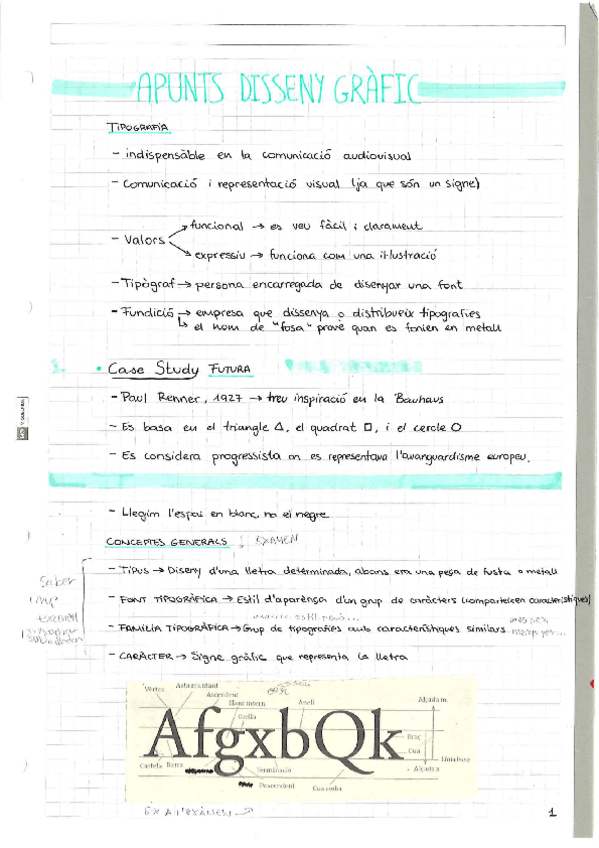 APUNTS DISSENY GRÀFIC
TIPOGRAFIA
- indispensable en la comunicació audiovisual
- Comunicació i representació visual (ja que són un signe)
- Valors → funcional → es veu fàcil i clarament
→ expressiu → funciona com una il·lustració
- Tipògraf → persona encarregada de disenyar una font
- Fundició → empresa que dissenya o distribueix tipografies
↳ el nom de "fosa" prové quan es fonien en metall
• Case Study FUTURA
- Paul Renner, 1927 → treu inspiració en la Bauhaus
- Es basa en el triangle △, el quadrat □, i el cercle ○
- Es considera progressista on es representava l'avanguardisme europeu.
- Llegim l'espai en blanc, no el negre
CONCEPTES GENERALS : EXAMEN
- TIPUS → Diseny d'una lletra determinada, abans era una peça de fusta o metall
Saber
- FONT TIPOGRÀFICA → Estil d'aparença d'un grup de caràcters (comparteixen característiques)
examen
- FAMÍLIA TIPOGRÀFICA → Grup de tipografies amb característiques similars
- CARÀCTER → Signe gràfic que representa la lletra
Vèrtex
Ascendent
Anell
Orella
AfgxbQk
Braç
Cua
Línia base
Barra
Terminació
Descendent
EX A l'EXAMEN
1